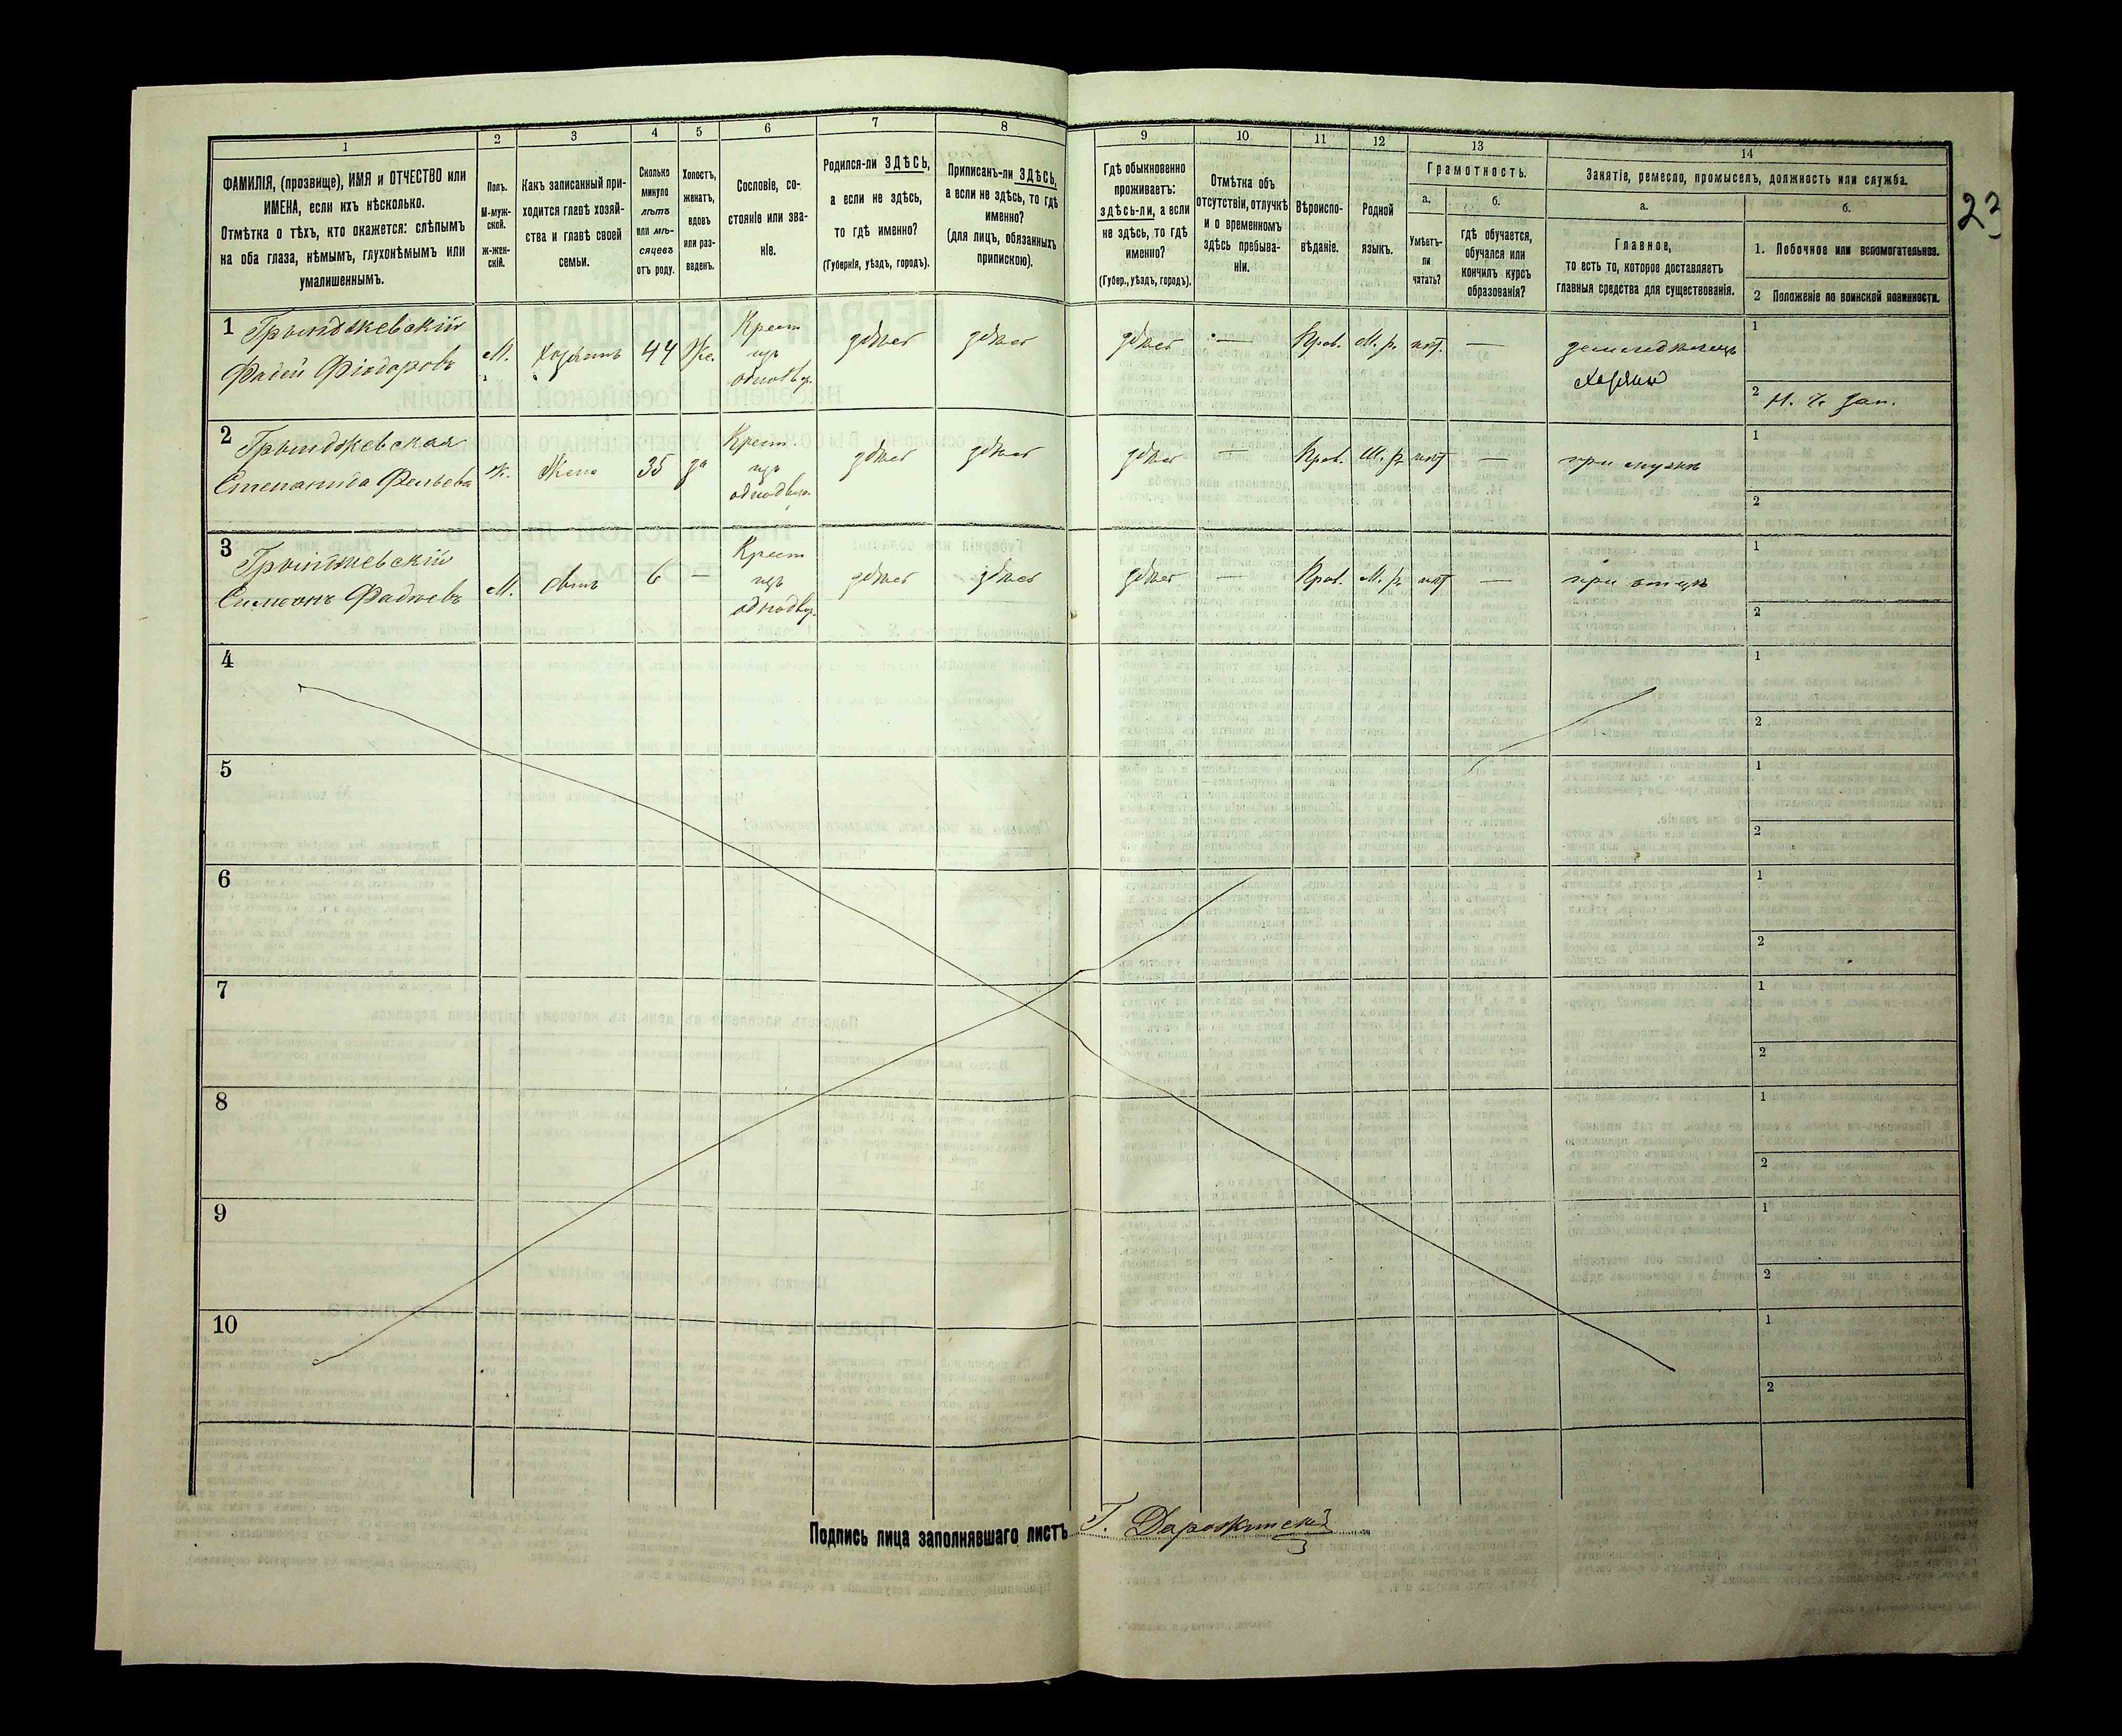 23
1
ФАМИЛІЯ, (прозвище), ИМЯ и ОТЧЕСТВО или
ИМЕНА, если ихъ нѣсколько.
Отмѣтка о тѣхъ, кто окажется: слѣпымъ
на оба глаза, нѣмымъ, глухонѣмымъ или
умалишеннымъ.
2
Полъ.
М-муж-
ской.
ж-жен-
скій.
3
Какъ записанный при-
ходится главѣ хозяй-
ства и главѣ своей
семьи.
4
Сколько
минуло
лѣтъ
или мѣ-
сяцевъ
отъ роду.
5
Холостъ,
женатъ,
вдовъ
или раз-
веденъ.
6
Сословіе, со-
стояніе или зва-
ніе.
7
Родился-ли ЗДѢСЬ,
а если не здѣсь,
то гдѣ именно?
(Губернія, уѣздъ, городъ).
8
Приписанъ-ли ЗДѢСЬ,
а если не здѣсь, то гдѣ
именно?
(для лицъ, обязанныхъ
припискою).
9
Гдѣ обыкновенно
проживаетъ:
здѣсь-ли, а если
не здѣсь, то гдѣ
именно?
(Губер., уѣздъ, городъ).
10
Отмѣтка объ
отсутствіи, отлучкѣ
и о временномъ
здѣсь пребыва-
ніи.
11
Вѣроиспо-
вѣданіе.
12
Родной
языкъ.
13
Грамотность.
а.
Умѣетъ-
ли
читать?
б.
гдѣ обучается,
обучался или
кончилъ курсъ
образованія?
14
Занятіе, ремесло, промыселъ, должность или служба.
а.
Главное,
то есть то, которое доставляетъ
главныя средства для существованія.
б.
1. Побочное или вспомогательное.
2 Положеніе по воинской повинности.
1 Грынджевскій
Фадей Фіодоровъ
М.
Хозяинъ
44
Же.
Крест
изъ
однодвор.
здѣсь
здѣсь
здѣсь
—
Прав.
М. р.
нѣт.
—
земледѣлецъ
хозяин
1
2
2 Грынджевская
Степанида
Ж.
Жена
35
Крест.
изъ
однодвор.
здѣсь
здѣсь
здѣсь
—
Прав.
нѣт
—
при мужѣ
1
2
3 Грынджевскій
Симеонъ Фадѣевъ
М.
сынъ
6
—
Крест
изъ
однодвор.
здѣсь
здѣсь
здѣсь
—
Прав.
М. р.
нѣт
—
при отцѣ
1
2
4
1
2
5
1
2
6
1
2
7
1
2
8
1
2
9
1
2
10
1
2
Подпись лица заполнявшаго листъ